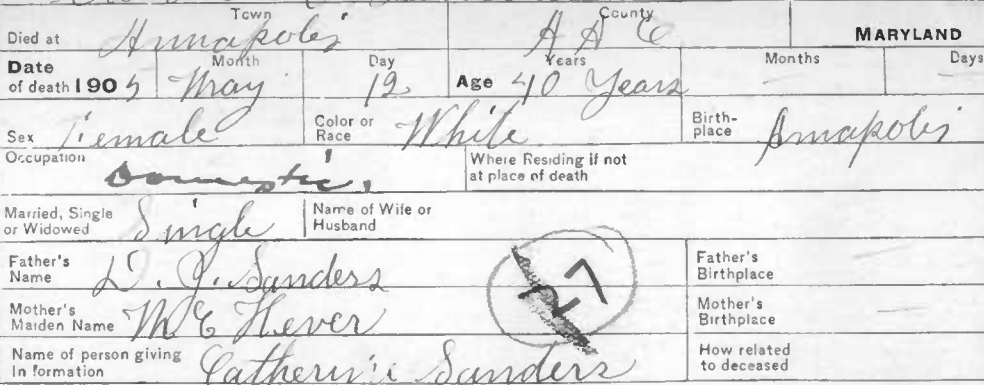 Died at Town Annapolis County A A C MARYLAND
Date of death 1905 Month May Day 12 Age Years 40 Years Months Days
Sex Female Color or Race White Birth-place Annapolis
Occupation Domestic. Where Residing if not at place of death
Married, Single or Widowed Single Name of Wife or Husband
Father's Name D. J. Sanders Father's Birthplace
Mother's Maiden Name M E Hever Mother's Birthplace
Name of person giving In formation Catherine Sanders How related to deceased